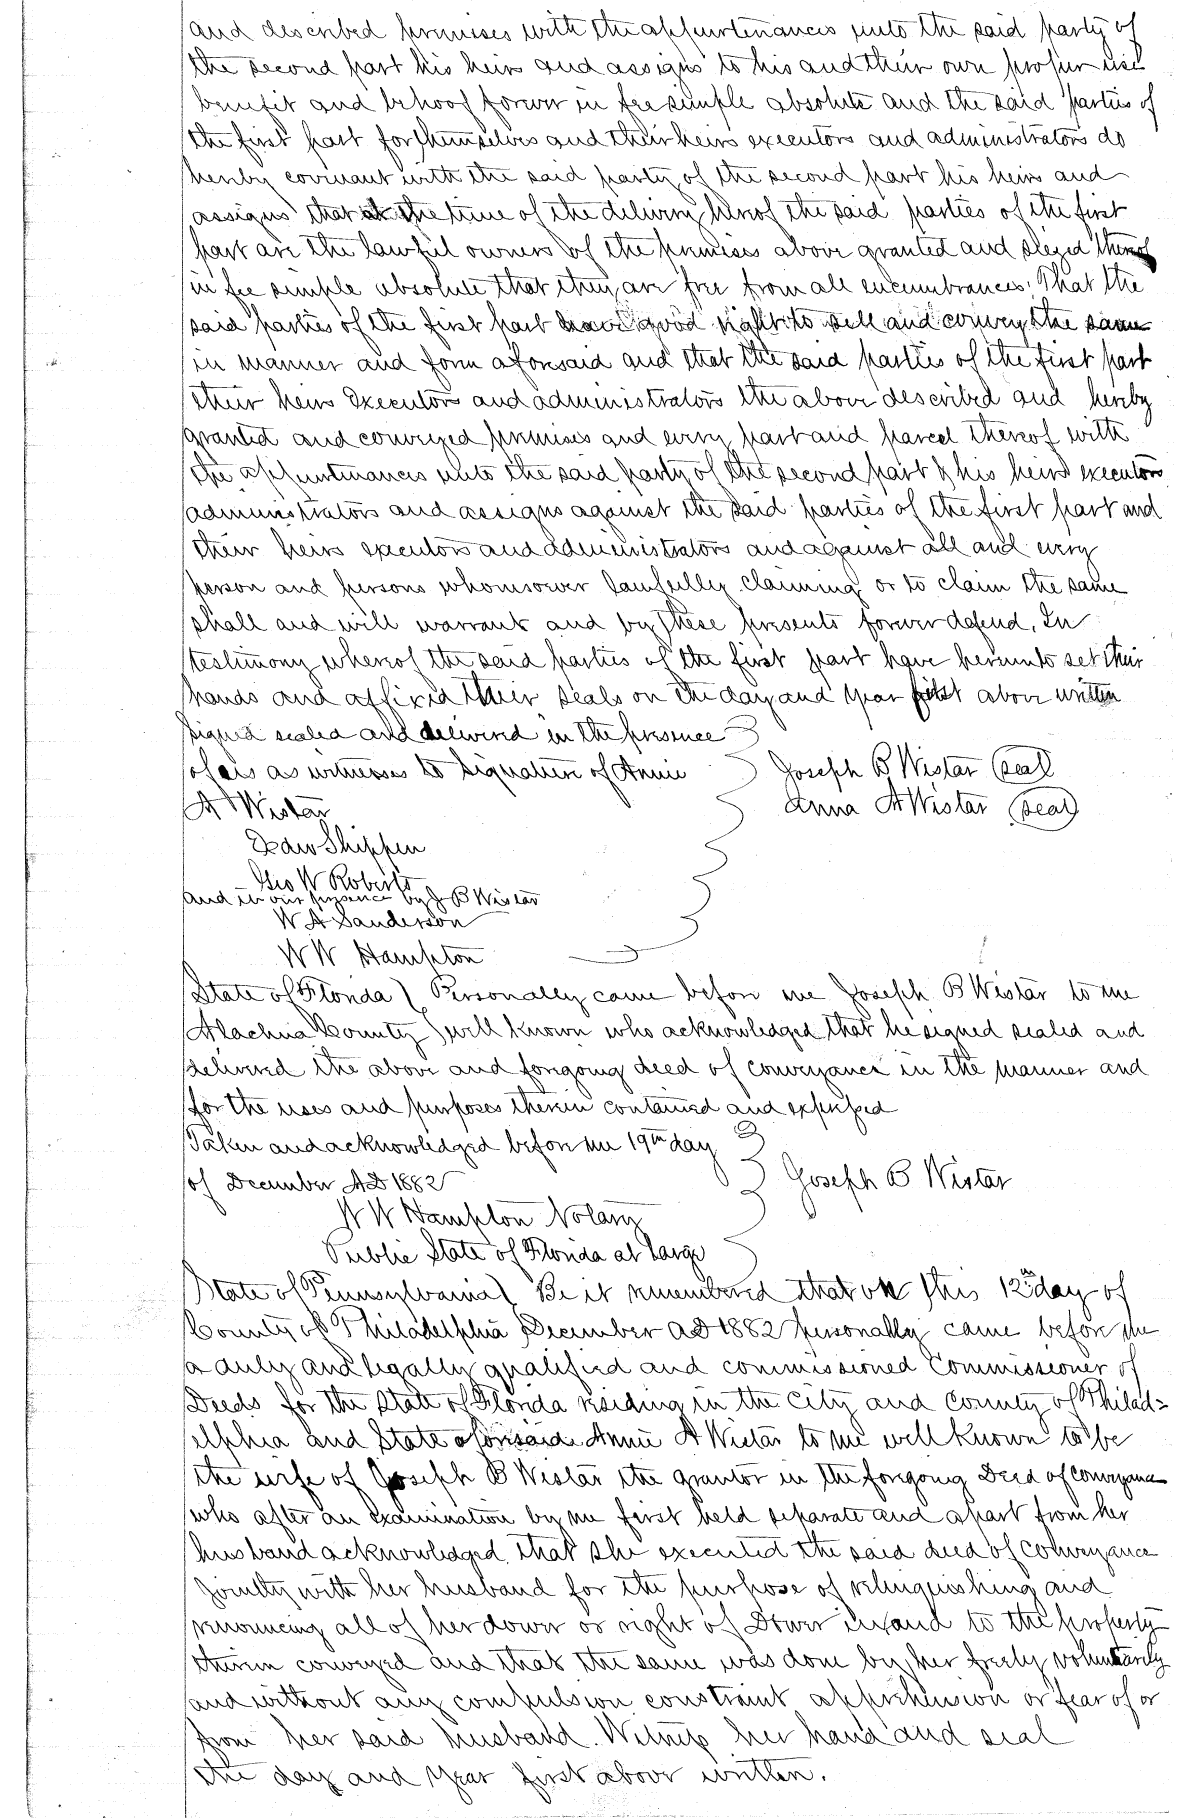 and described premises with the appurtenances unto the said party of
the second part his heirs and assigns to his and their own proper use
benefit and behoof forever in fee simple absolute and the said parties of
the first part for themselves and their heirs executors and administrators do
hereby covenant with the said party of the second part his heirs and
assigns that at the time of the delivery hereof the said parties of the first
part are the lawful owners of the premises above granted and siezed thereof
in fee simple absolute that they are free from all encumbrances: That the
said parties of the first part have good right to sell and convey the same
in manner and form aforesaid and that the said parties of the first part
their heirs Executors and administrators the above described and hereby
granted and conveyed premises and every part and parcel thereof with
the appurtenances unto the said party of the second part & his heirs executors
administrators and assigns against the said parties of the first part and
their heirs executors and administrators and against all and every
person and persons whomsoever lawfully claiming or to claim the same
shall and will warrant and by these presents forever defend. In
testimony whereof the said parties of the first part have hereunto set their
hands and affixed their seals on the day and year first above written
Signed sealed and delivered in the presence
of us as witnesses to Signature of Annie Joseph B Wistar (seal)
A Wistar Anna A Wistar (seal)
Edw Shippen
Geo W Roberts
and in our presence by J B Wistar
W A Sanderson
W W Hampton
State of Florida } Personally came before me Joseph B Wistar to me
Alachua County } well known who acknowledged that he signed sealed and
delivered the above and foregoing deed of conveyance in the manner and
for the uses and purposes therein contained and expressed
Taken and acknowledged before me 19th day
of December AD 1882 Joseph B Wistar
W W Hampton Notary
Public State of Florida at Large
State of Pennsylvania } Be it remembered that on this 12th day of
County of Philadelphia } December AD 1882 personally came before me
a duly and legally qualified and commissioned Commissioner of
Deeds for the State of Florida residing in the City and County of Philad=
elphia and State aforesaid Annie A Wistar to me well known to be
the wife of Joseph B Wistar the grantor in the foregoing Deed of conveyance
who after an examination by me first held separate and apart from her
husband acknowledged that she executed the said deed of conveyance
jointly with her husband for the purpose of relinquishing and
renouncing all of her dower or right of Dower in and to the property
therein conveyed and that the same was done by her freely voluntarily
and without any compulsion constraint apprehension or fear of or
from her said husband. Witness her hand and seal
the day and year first above written.